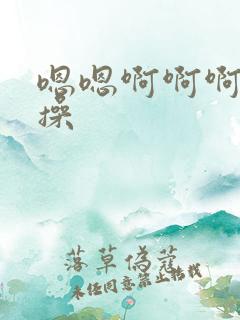 嗯嗯啊啊啊
操
落草為蔻
未经同意禁止转载